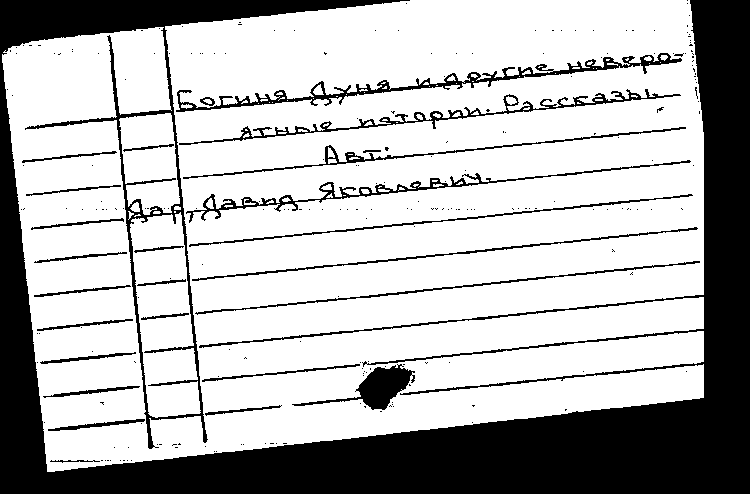 Богиня Дуня и другие неверо-
ятные истории. Рассказы.
Авт.:
Дар, Давид Яковлевич.